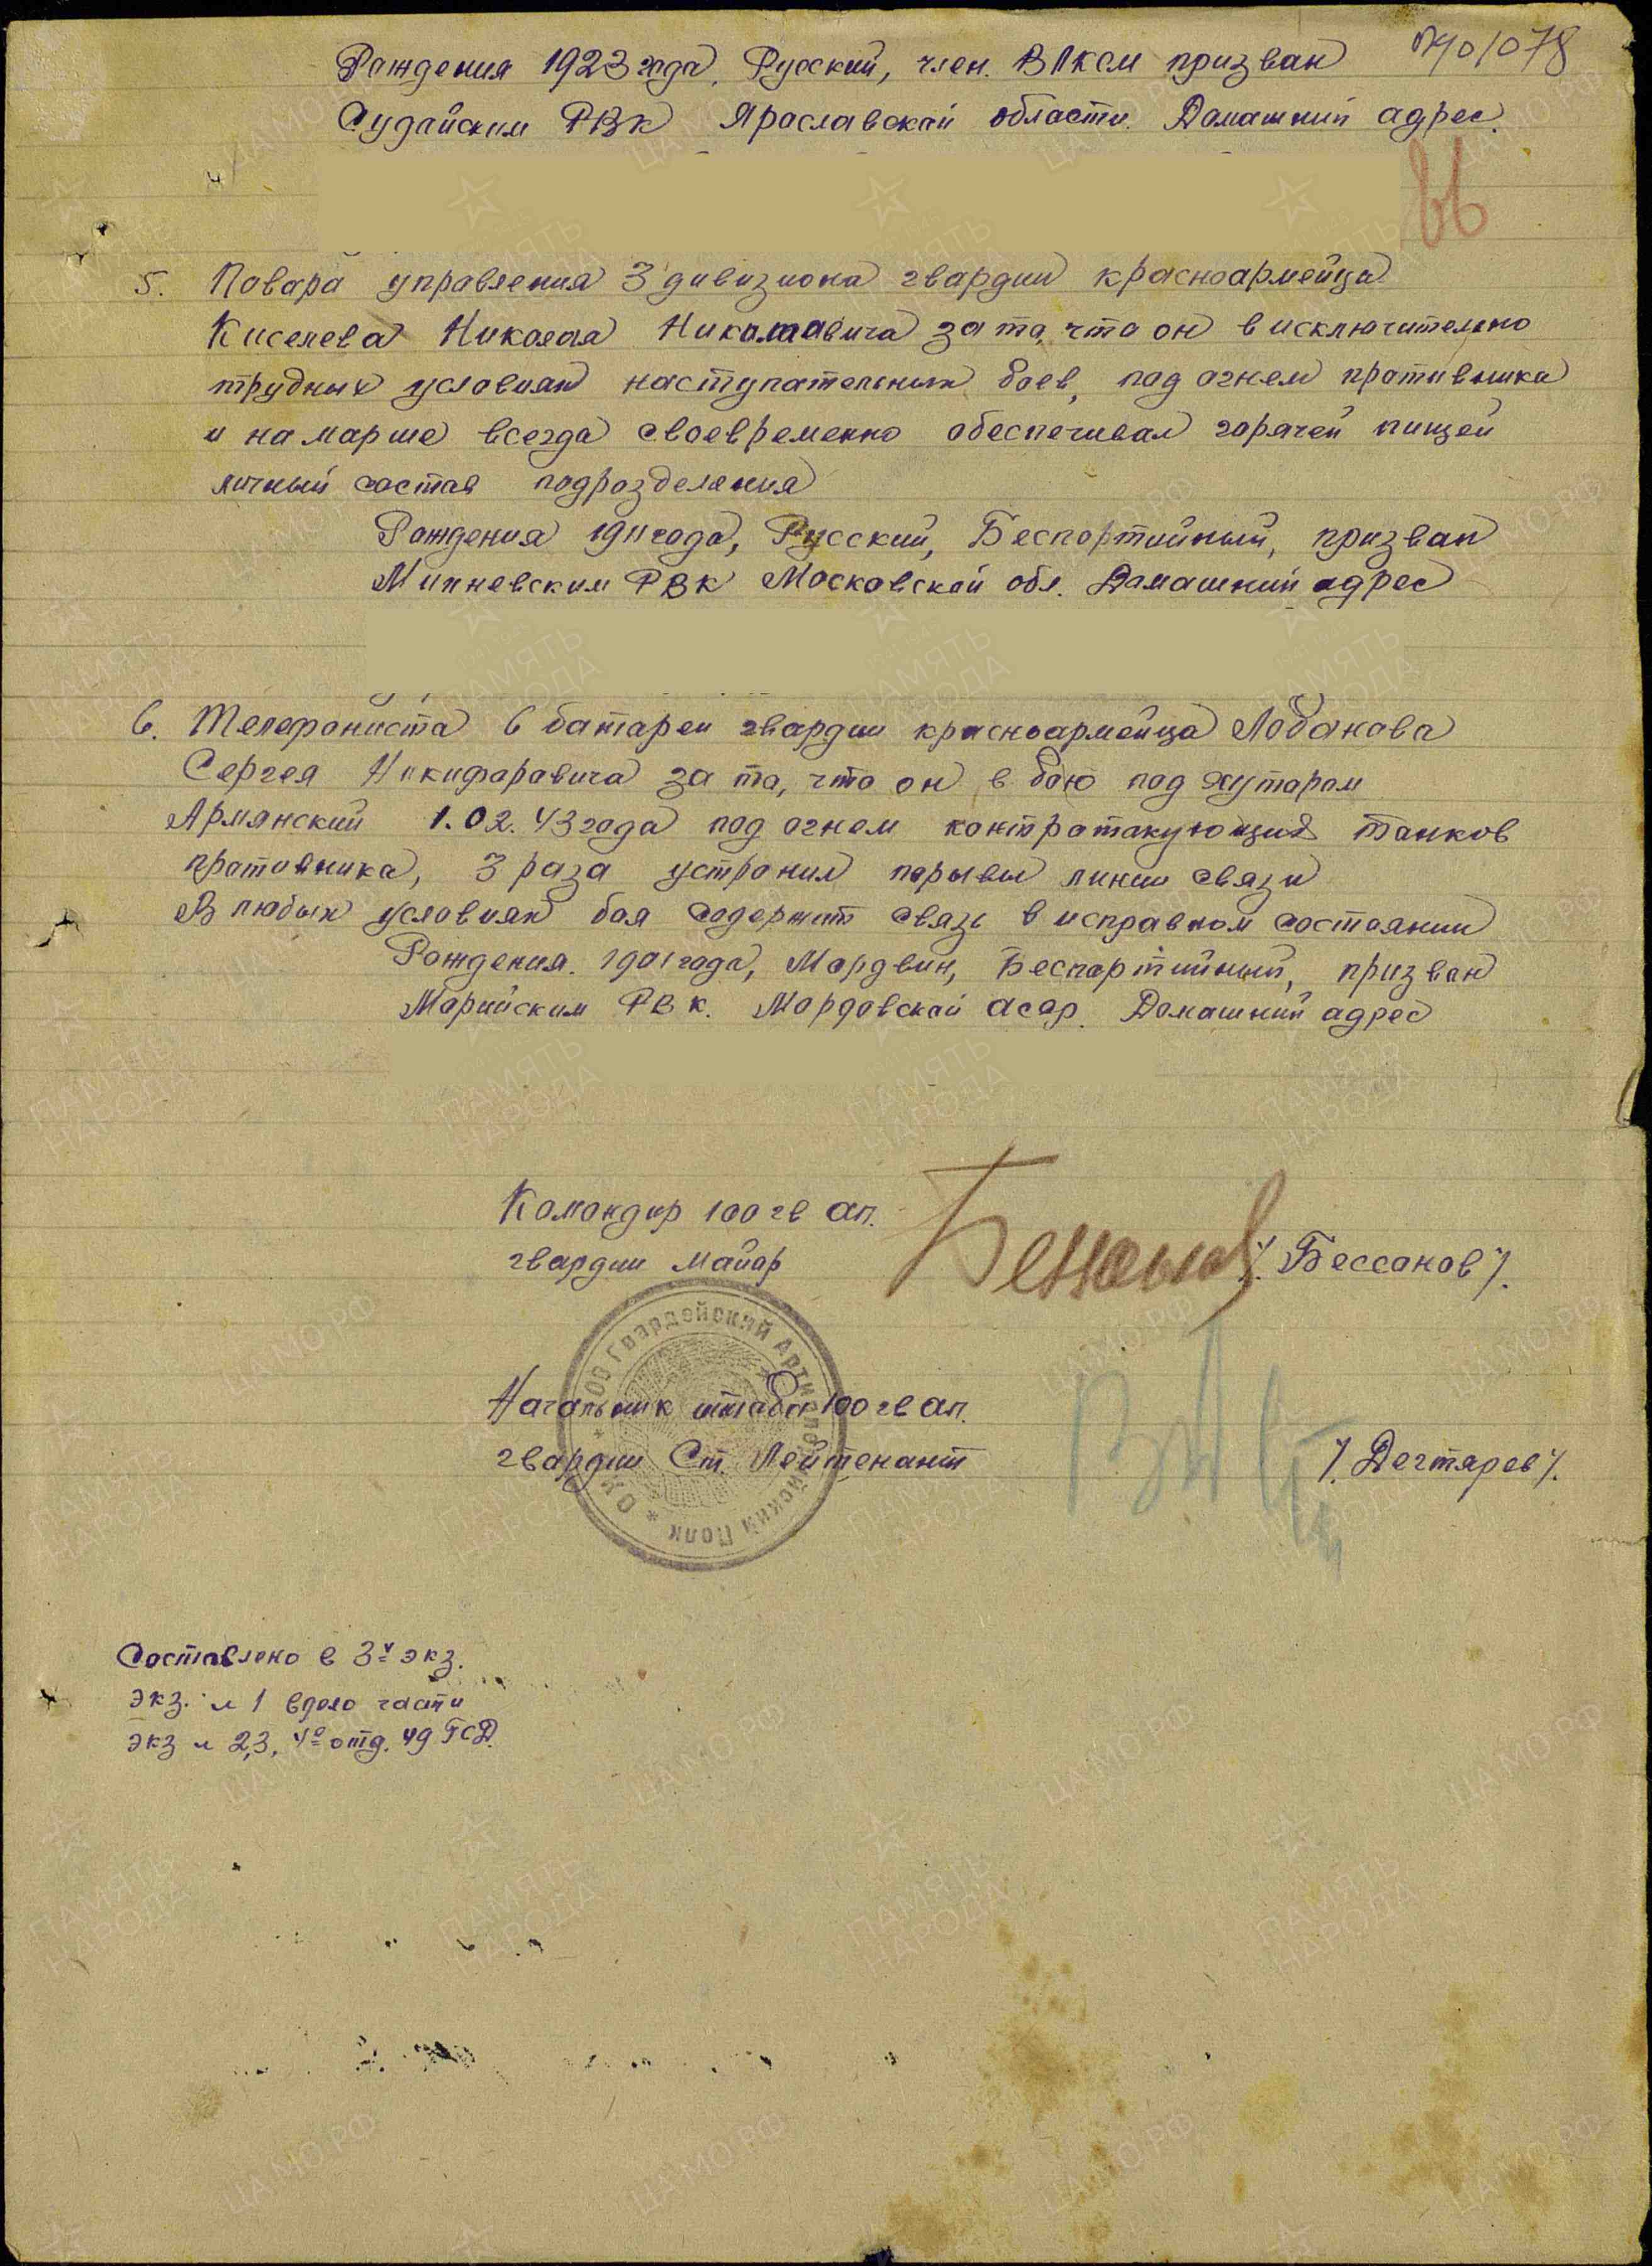 Рождения 1923 года, Русский, член ВЛКСМ призван
Судайским РВК Ярославской области. Домашний адрес.
66
5. Повара управления 3 дивизиона гвардии красноармейца
Киселева Николая Николаевича за то, что он в исключительно
трудных условиях наступательных боев, под огнем противника
и на марше всегда своевременно обеспечивал горячей пищей
личный состав подразделения
Рождения 1911 года, Русский, Беспартийный, призван
Михневским РВК Московской обл. Домашний адрес
6. Телефониста 6 батареи гвардии красноармейца Лобанова
Сергея Никифаровича за то, что он в бою под хутором
Армянский 1.02.43 года под огнем контратакующих танков
противника, 3 раза устранил порывы линии связи
В любых условиях боя содержит связь в исправном состоянии
Рождения 1901 года, Мордвин, Беспартийный, призван
Марийским РВК. Мордовской асср. Домашний адрес
Командир 100 гв ап.
гвардии Майор /. Бессанов /.
100 Гвардейский Артиллерийский Полк
Начальник штаба 100 гв ап.
гвардии Ст. Лейтенант /. Дегтярев /.
Составлено в 3х экз.
экз. н 1 в дело части
экз н 2,3, 4о отд. 49 ГСД.
ПАМЯТЬ НАРОДА
ЦАМО РФ